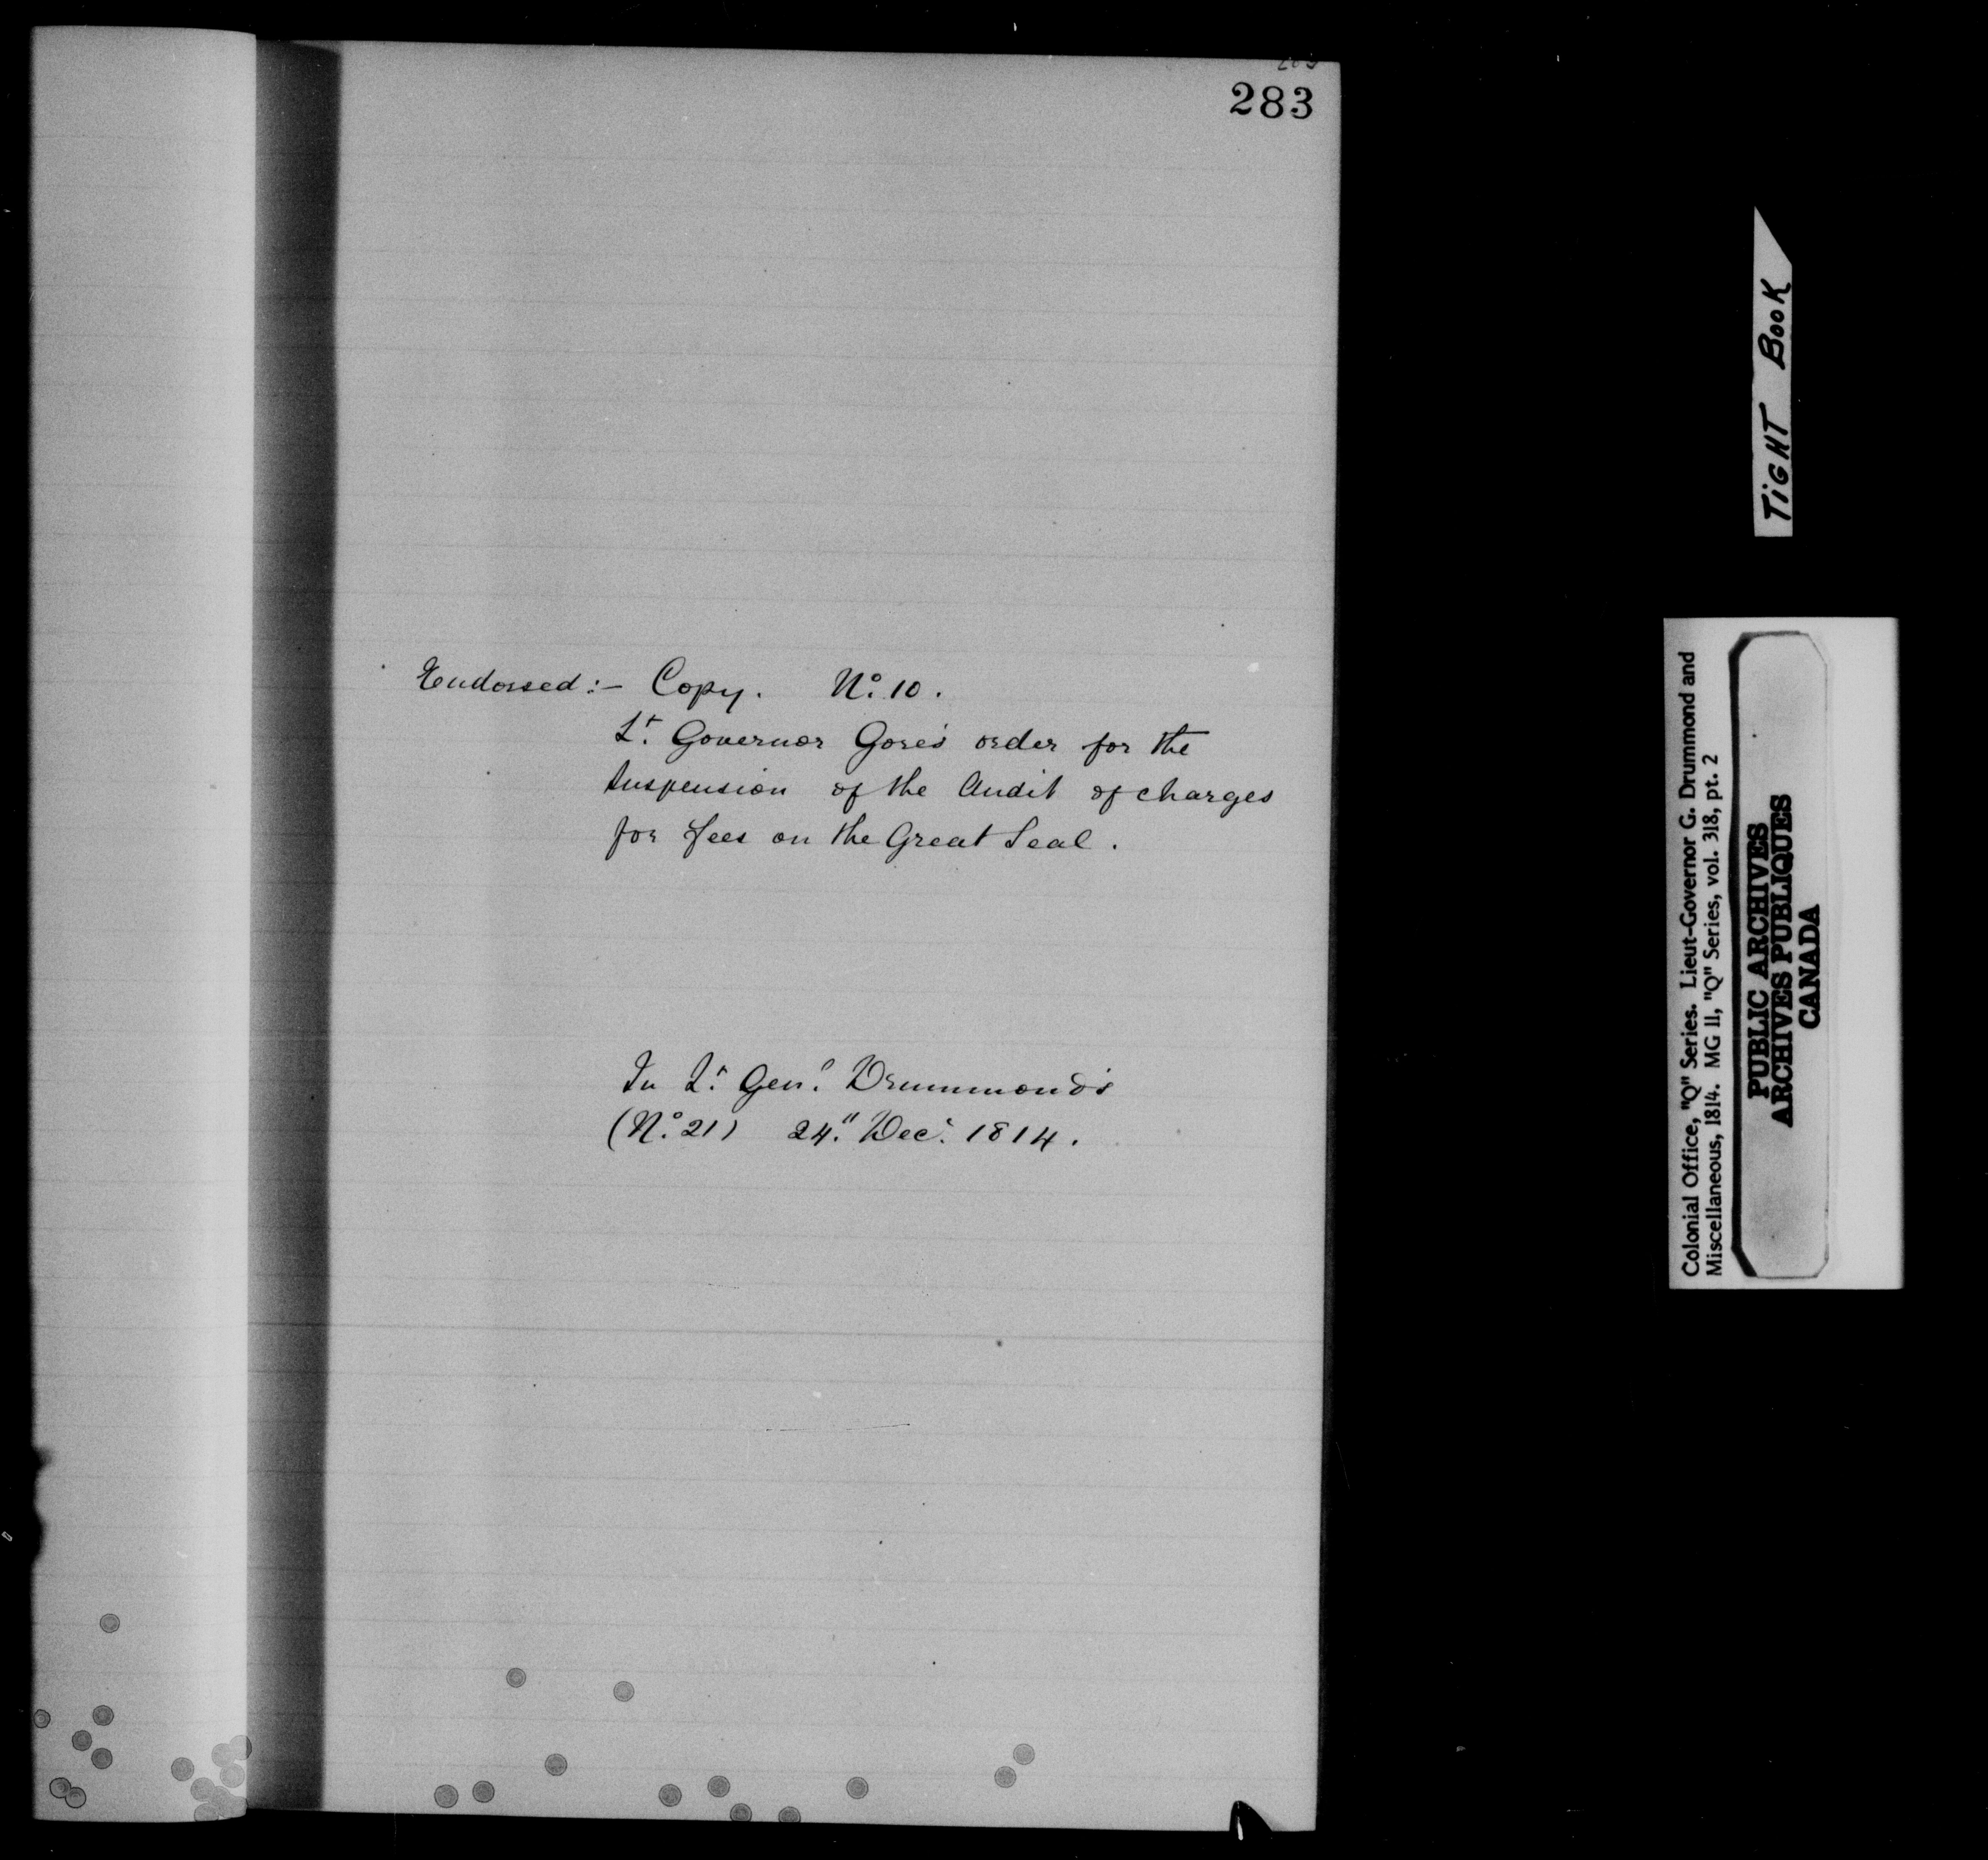 283
Endorsed:- Copy. No. 10.
Lt. Governor Gore's order for the
Suspension of the Audit of charges
for fees on the Great Seal.
In Lt. Genl. Drummond's
(No. 21) 24." Decr. 1814.
TiGHT BooK
Colonial Office, "Q" Series. Lieut-Governor G. Drummond and
Miscellaneous, 1814. MG 11, "Q" Series, vol. 318, pt. 2
PUBLIC ARCHIVES
ARCHIVES PUBLIQUES
CANADA